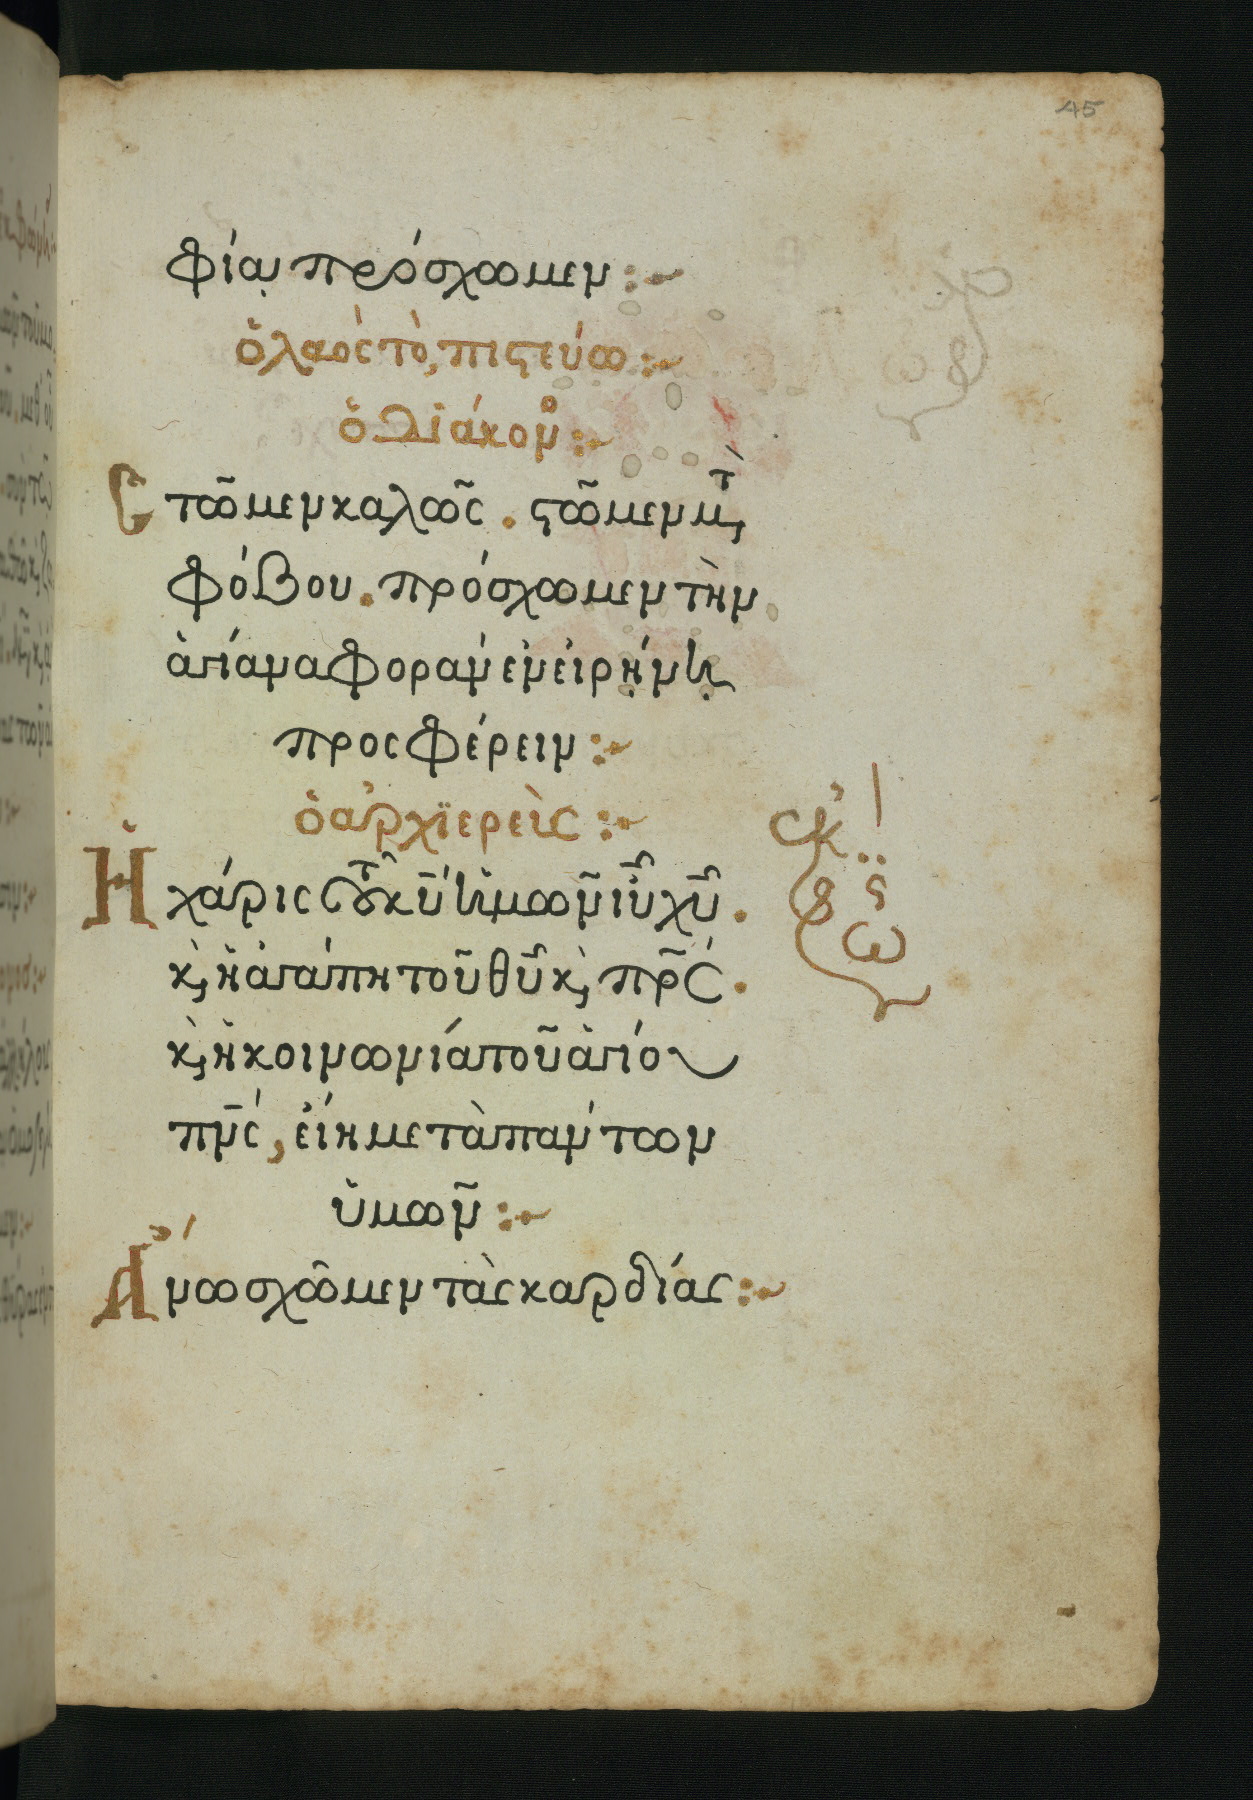 45
φία πρόσχωμεν :~
ὁ λαὸς τὸ, πιστεύω :~
ὁ διάκον :~
Στῶμεν καλῶς . στῶμεν μτ̀
φόβου . πρόσχωμεν τὴν
ἁγίαν ἀναφορὰν ἐν εἰρήνῃ
προσφέρειν :~
ὁ ἀρχϊερεὺς :~
Ἡ χάρις τοῦ κῡ ἡμῶν ιῡ χῡ .
κ, ἡ ἀγάπη τοῦ θῡ κ, πρ̅ς .
κ, ἡ κοινωνία τοῦ ἁγίου
πν̅ς, εἴη μετὰ πάντων
ὑμῶν :~
Ἄνω σχῶμεν τὰς καρδίας :~